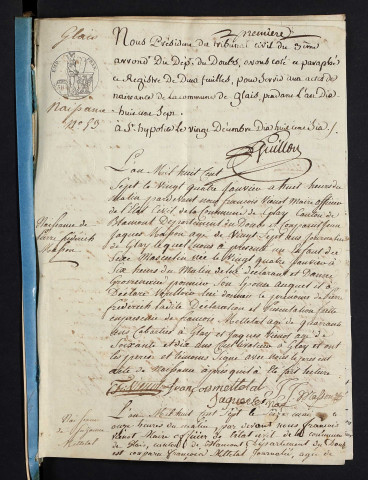 Glais
premiere
Nous Président du tribunal civil du 3ieme
arrond. du Dép. du Doubs, avons coté et paraphé
ce Registre de Deux feuilles, pour servir aux actes de
naissance de la commune de glais, pendant l'an Dix
huit cent Sept.
à St. hypolite le vingt Décembre Dix huit cent Six.
Guillon
Naissance
N° 59
L'an Mil huit Cent
Sept le Vingt quatre Janvier a huit heures du
Matin par devant nous françois Vuinot Maire officier
de l'état Civil de la Commune de Glay Canton de
Blamont Département du Doubs est Comparut Jean
Jaques agé de Vingt Sept ans Journalier
de Glay lequel nous a présenté un enfant de
Sexe Masculin née le Vingt quatre Janvier à
Six heures du Matin de lui déclarant et de
son Epouse auquel il a
Déclaré Vouloir lui donner le prénoms de
frédérich la dite Déclaration et présentation faite
en présence de françois Mettetal agé de quarante
trois Cabartier à Glay et Jaques agé de
Soixante et dix ans Cultivateur à Glay et ont
les pères et témoins Signé avec nous le présent
acte de Naissance après qu'il à été fait lecture
Naissance de
frédérich
françois mettetal
Jaques
L'an Mil huit Cent Sept le
aux heures du matin, par devant nous françois
Vuinot Maire officier de l'état civil de la commune
de Glais, canton de Blamont Département du Doubs
est comparu françois Mettetal Journalier, agé de
Naissance
de
Mettetal